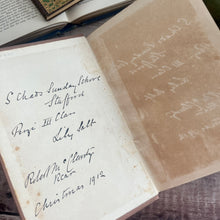 S Chads Sunday School
Stafford
Prize III Class
Lily Salt
Robert McCleverty
Rector
Christmas 1912